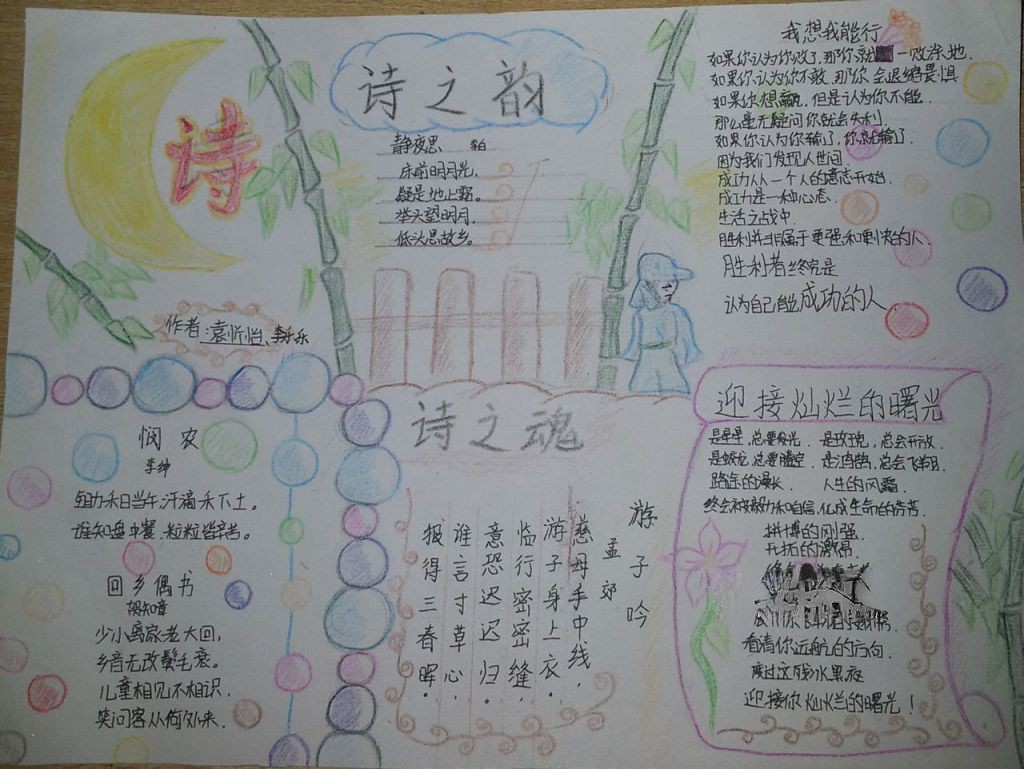 诗
作者:袁忻怡、李乐乐
诗之韵
静夜思 李白
床前明月光,
疑是地上霜。
举头望明月,
低头思故乡。
我想我能行
如果你认为你败了,那你就一败涂地.
如果你认为你不敢,那你会退缩畏惧
如果你想赢,但是认为你不能.
那么毫无疑问你就会失利.
如果你认为你输了,你就输了
因为我们发现人世间.
成功从一个人的意志开始.
成功是一种心态.
生活之战中.
胜利并非属于更强和更快的人.
胜利者终究是
认为自己能成功的人
悯农
李绅
锄禾日当午,汗滴禾下土。
谁知盘中餐,粒粒皆辛苦。
回乡偶书
贺知章
少小离家老大回,
乡音无改鬓毛衰。
儿童相见不相识,
笑问客从何处来.
诗之魂
游子吟
孟郊
慈母手中线,
游子身上衣.
临行密密缝
意恐迟迟归.
谁言寸草心,
报得三春晖.
迎接灿烂的曙光
是星星,总要发光. 是玫瑰,总会开放.
是蛟龙,总要腾空. 是鸿鹄,总会飞翔.
路途的漫长、 人生的风霜
终会被毅力和自信,化成生命的芬芳.
拼搏的刚强.
开拓的激昂
看清你远航的方向.
度过这残冰黑夜
迎接你灿烂的曙光!